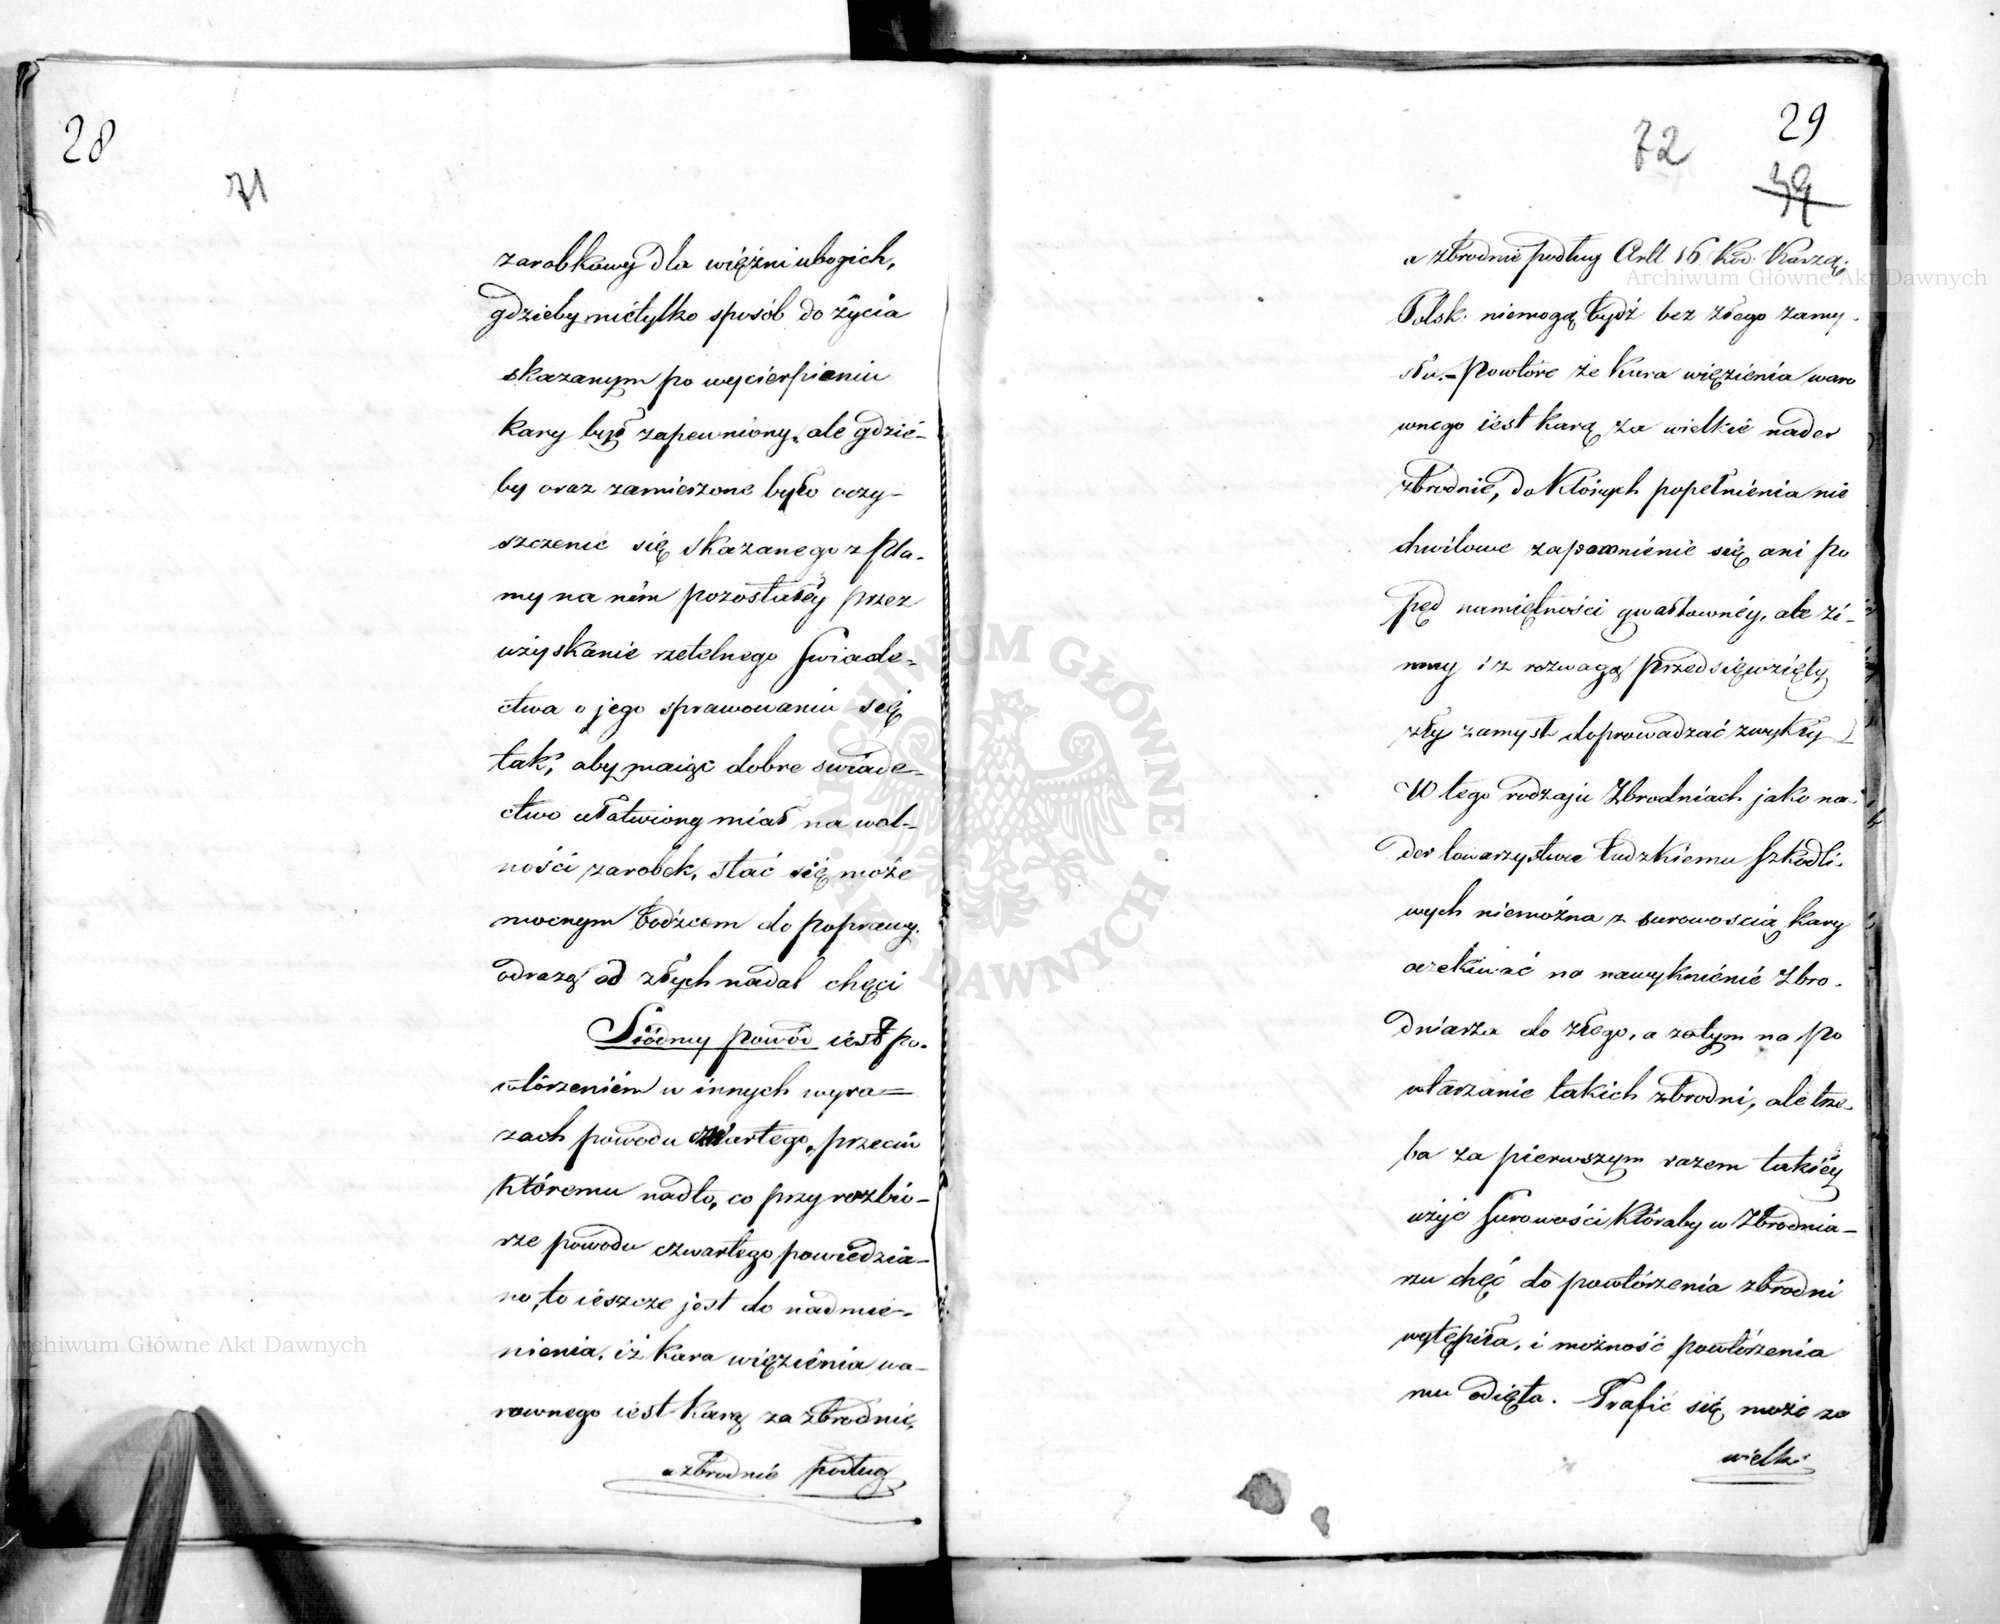 28
71
zarobkowy dla więźni ubogich,
gdzieby nietylko sposób do życia
skazanym po wycierpieniu
kary był zapewniony, ale gdzie-
by oraz zamierzone było oczy-
szczenie się skazanego z pla-
my na nim pozostałéy przez
uzyskanie rzetelnego świade-
ctwa o jego sprawowaniu się
tak, aby maiąc dobre swiade-
ctwo ułatwiony miał na wol-
ności zarobek, stać się może
mocnym bodźcem do poprawy,
odrazą od złych nadal chęci
Siódmy powód iest po-
wtórzeniem w innych wyra=
zach powodu czwartego, przeciw
któremu nadto, co przy rozbio-
rze powodu czwartego powiedzia-
no, to ieszcze jest do nadmie-
nienia, iż kara więzienia wa-
rownego iest karą za zbrodnie,
a zbrodnie podług
29
72
39
a zbrodnie podług Artt 16 Kod: Karzą:
Polsk: niemogą bydź bez złego zamy-
słu. – Powtóre że kara więzienia waro
wnego iest karą za wielkie nader
zbrodnie, do których popełnienia nie
chwilowe zapomnienie się ani po
pęd namiętności gwałtownéy, ale zi-
mny i z rozwagą przedsięwzięty
zły zamysł doprowadzać zwykły
W tego rodzaju Zbrodniach jako na-
der towarzystwu ludzkiemu szkodli-
wych niemożna z surowoscią kary
oczekiwać na nawyknienie Zbro-
dniarza do złego, a zatym na po
wtarzanie takich zbrodni, ale trze-
ba za pierwszym razem takiéy
użyć surowości któraby w Zbrodnia-
rzu chęć do powtórzenia zbrodni
wytępiła, i możność powtórzenia
mu odięła. Trafić się może za
wielki
Archiwum Główne Akt Dawnych
Archiwum Główne Akt Dawnych
ARCHIWUM GŁÓWNE AKT DAWNYCH